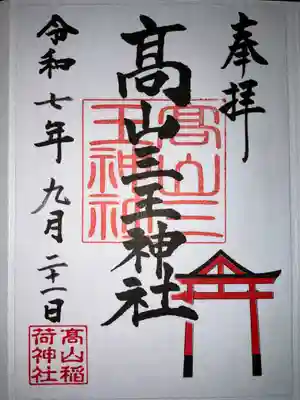 奉拝
髙山三王神社
髙山三王神社
令和七年九月二十一日
髙山稲荷神社